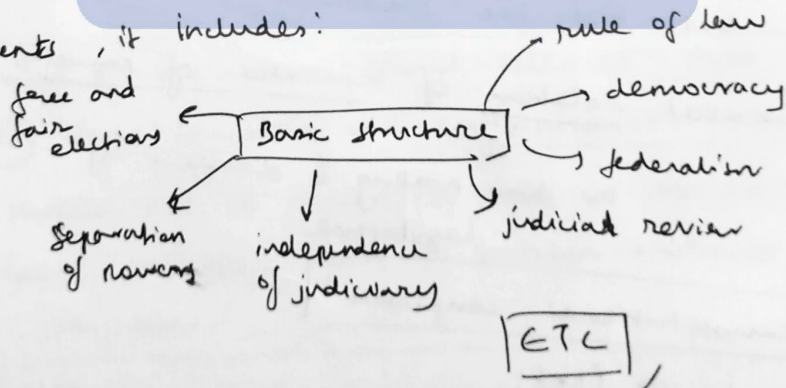 ents, it includes:
rule of law
free and
fair
elections
Basic structure
democracy
federalism
judicial review
separation
of powers
independence
of judiciary
ETC